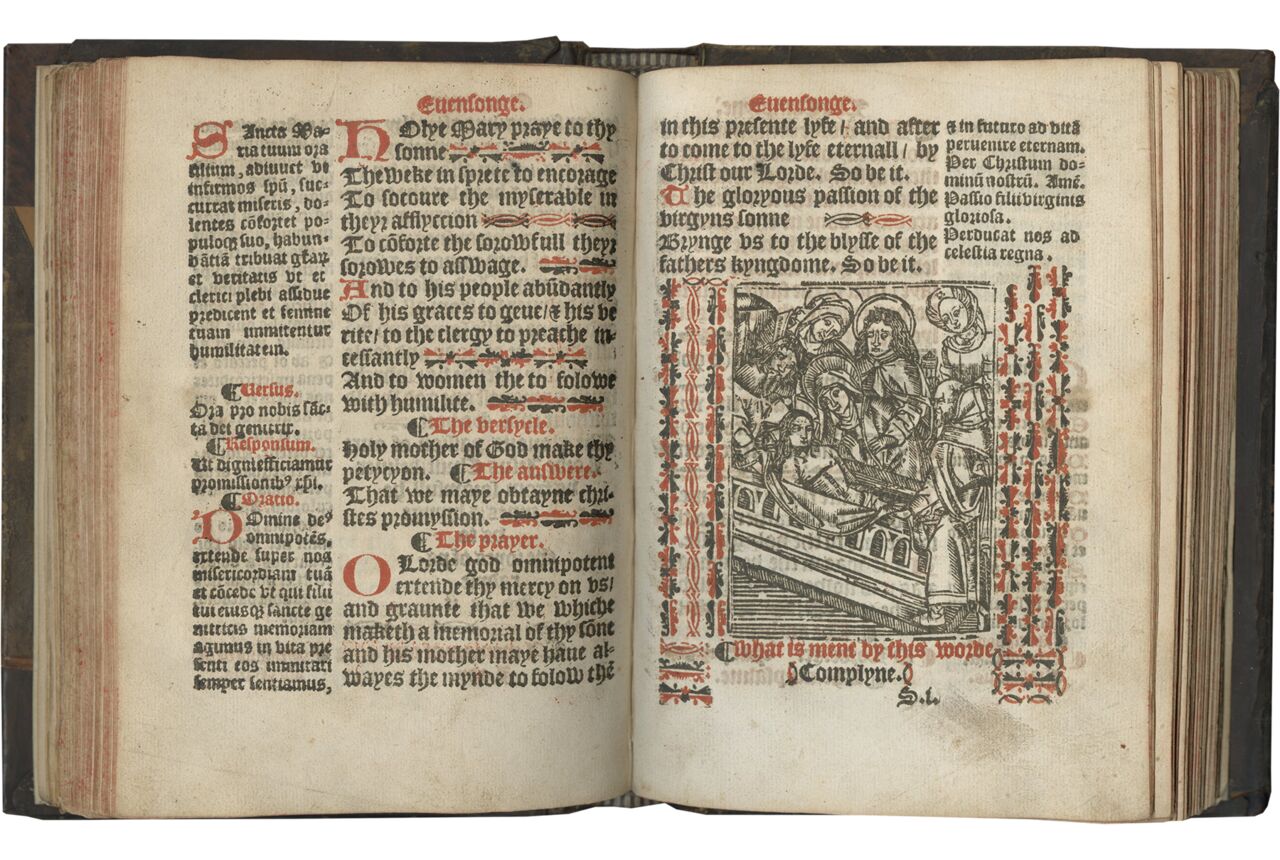 Euensonge.
SAncta Ma-
ria tuum ora
filium, adiuuet vt
infirmos spū, suc-
currat miseris, do-
lentes cōfortet po-
puloq; suo, habun-
dātiā tribuat
et veritatis vt et
clerici plebi assidue
predicent et femine
tuam immitentur
humilitatem.
¶Uersus.
Ora pro nobis sāc-
ta dei genitrix.
¶Responsum.
Ut digni efficiamur
promissionibꝰ xp̄i.
¶Oratio.
DOmine deꝰ
omnipotēs,
extende super nos
misericordiam tuā
et cōcede vt qui filii
tui eiusq; sancte ge
nitricis memoriam
agimus in vita pre
senti eos immitari
semper sentiamus,
HOlye Mary praye to thy
sonne
The weke in sprete to encorage
To socoure the myserable in
theyr afflyccion
To cōforte the sorowfull theyr
sorowes to asswage.
And to his people abūdantly
Of his graces to geue/ & his ve
rite/ to the clergy to preache in-
cessantly
And to women the to folowe
with humilite.
¶The versycle.
Holy mother of God make thy
petycyon. ¶The answere.
That we maye obtayne chri-
stes promyssion.
¶The prayer.
OLorde god omnipotent
extende thy mercy on vs/
and graunte that we whiche
maketh a memorial of thy sone
and his mother maye haue al-
wayes the mynde to folow thē
Euensonge.
in this presente lyfe/ and after
to come to the lyfe eternall/ by
Christ our Lorde. So be it.
The gloryous passion of the
virgyns sonne
Brynge vs to the blysse of the
fathers kyngdome. So be it.
& in futuro ad vitā
peruenire eternam.
Per Christum do-
minū nostrū. Amē.
Passio filii virginis
gloriosa.
Perducat nos ad
celestia regna.
¶What is ment by this worde
Complyne.
S.i.